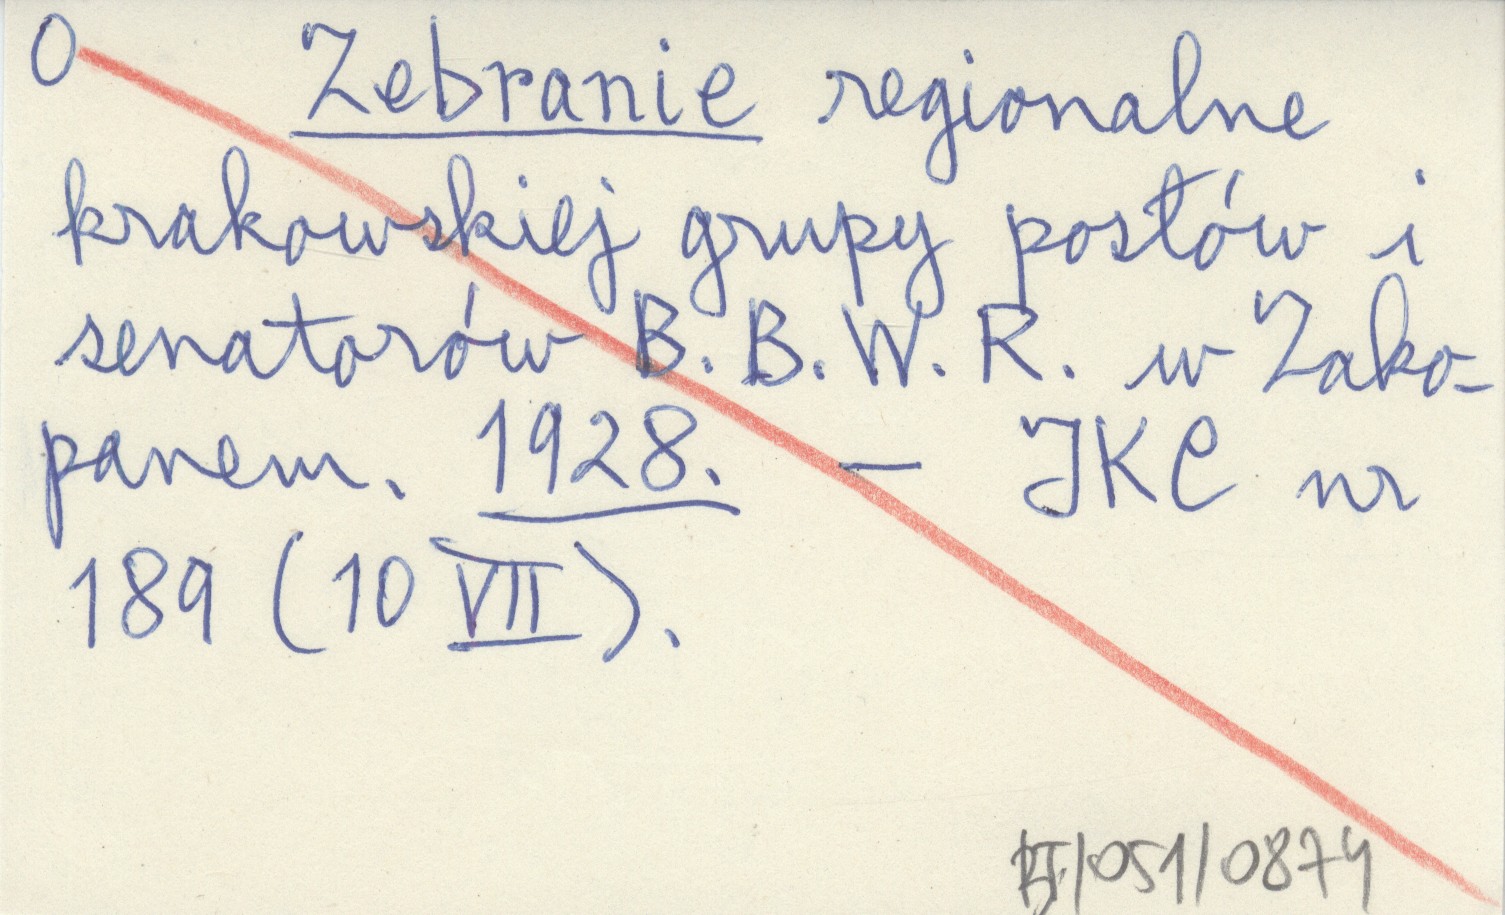 O Zebranie regionalne
krakowskiej grupy posłów i
senatorów B. B. W. R. w Zako-
panem. 1928. — JKC nr
189 (10 VII).
/051/0874